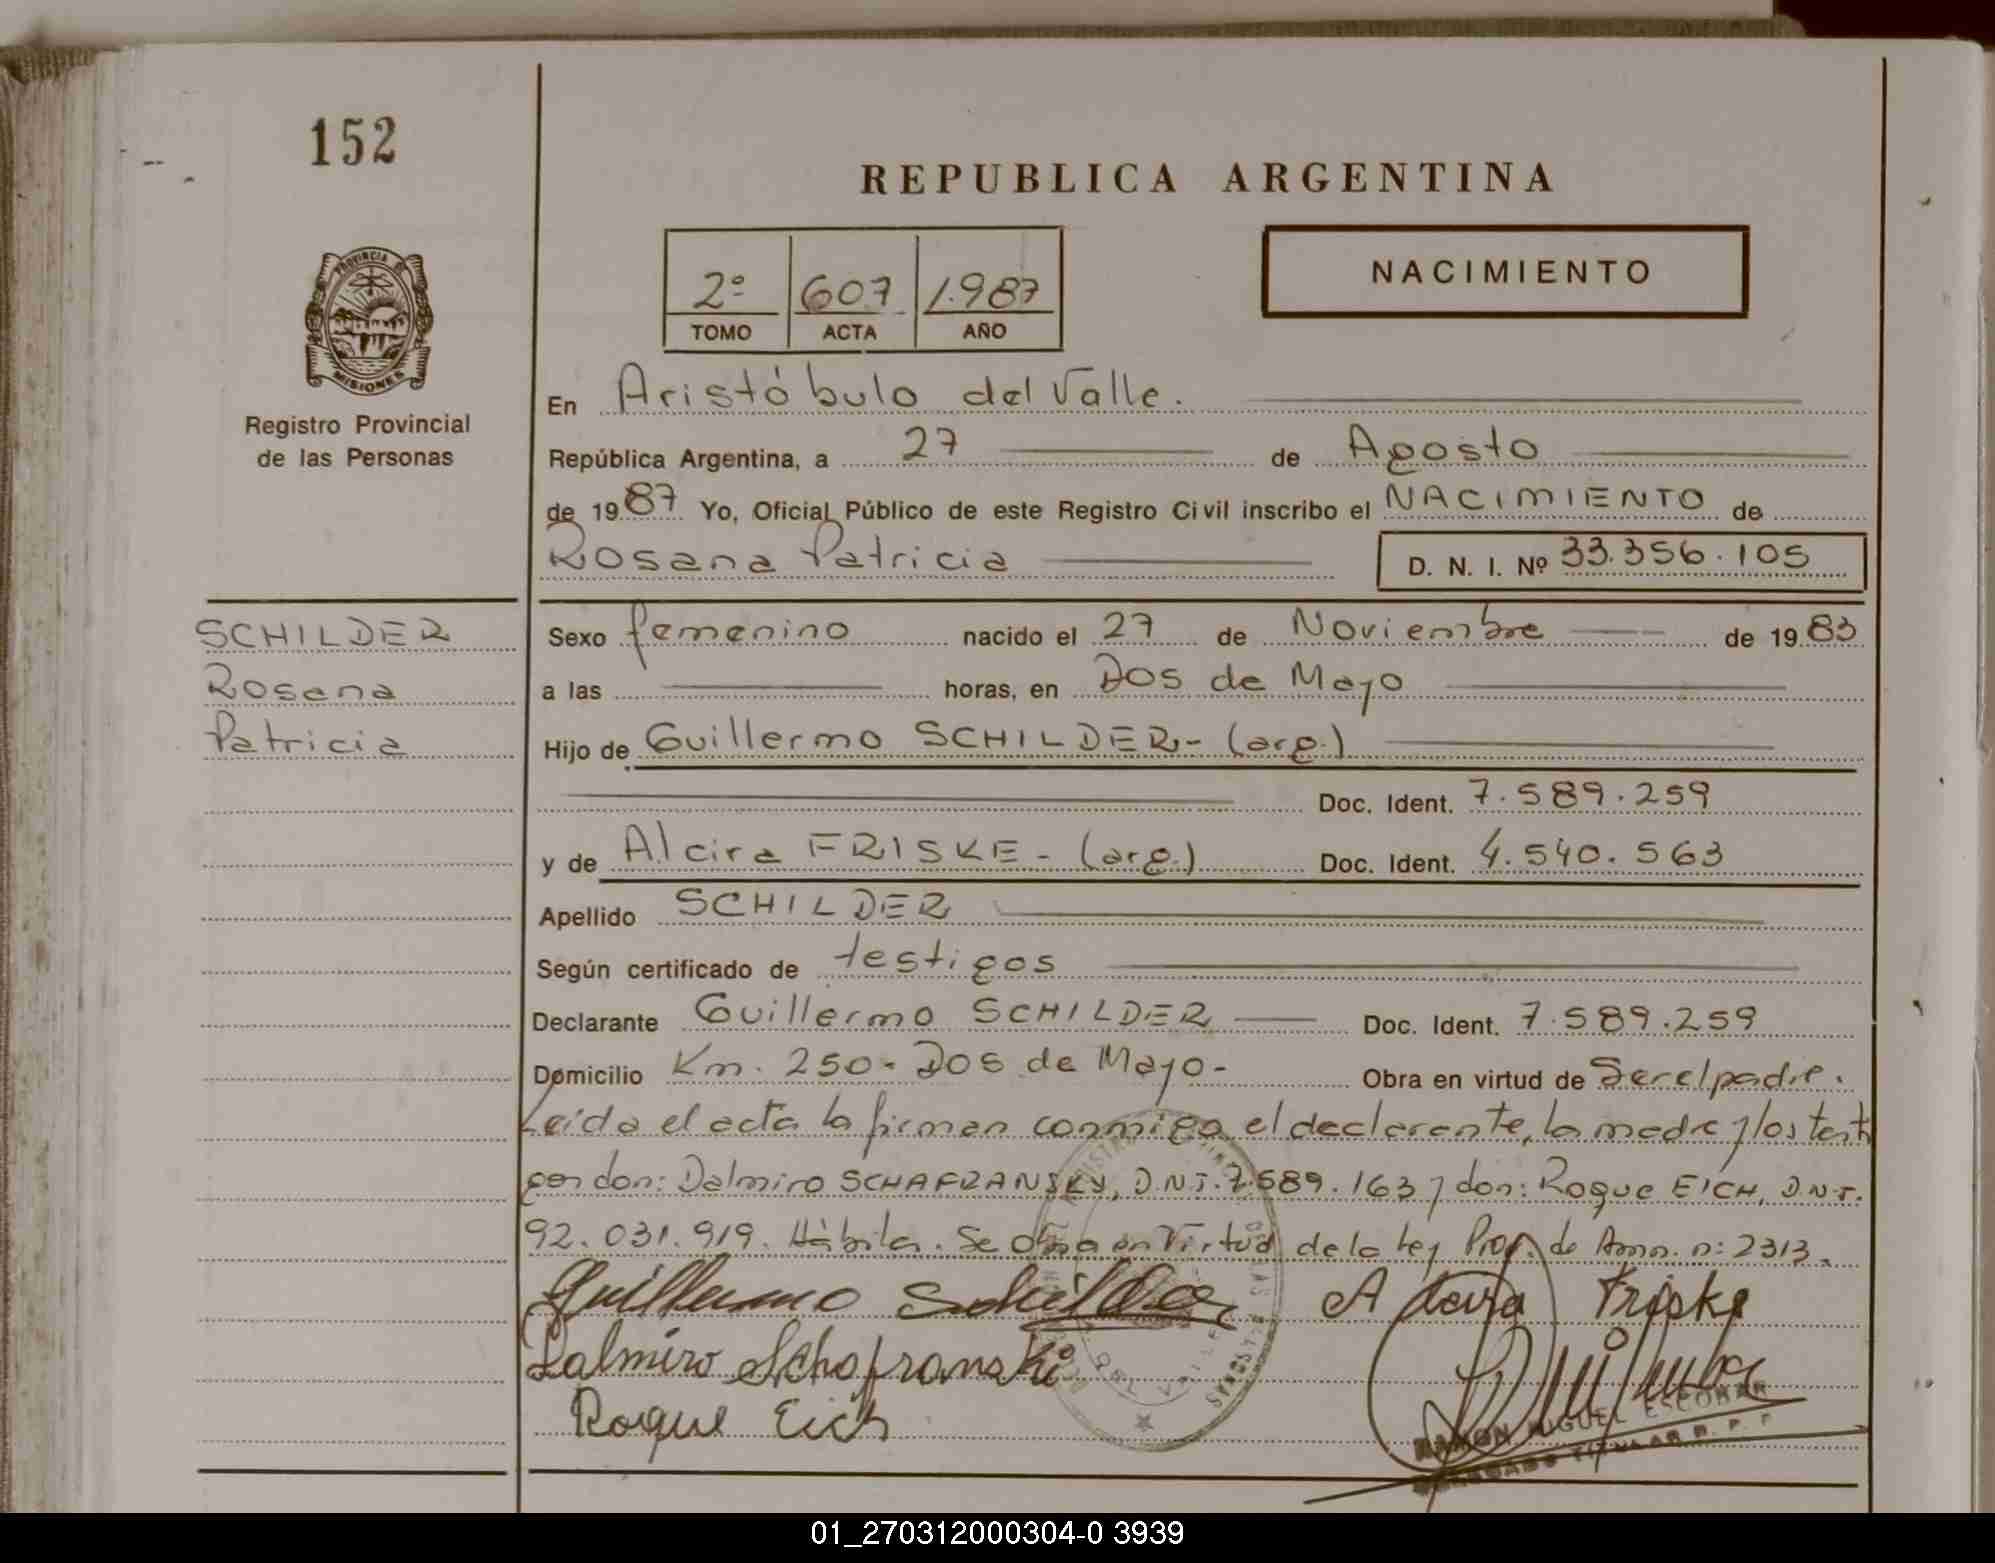 152
REPUBLICA ARGENTINA
2º 607 1.987
TOMO ACTA AÑO
NACIMIENTO
PROVINCIA DE
MISIONES
Registro Provincial
de las Personas
En Aristóbulo del Valle.
República Argentina, a 27 de Agosto
de 1987 Yo, Oficial Público de este Registro Civil inscribo el NACIMIENTO de
Rosana Patricia D. N. I. Nº 33.356.105
SCHILDER
Rosana
Patricia
Sexo femenino nacido el 27 de Noviembre de 1983
a las horas, en Dos de Mayo
Hijo de Guillermo SCHILDER- (arg.)
Doc. Ident. 7.589.259
y de Alcira FRISKE- (arg.) Doc. Ident. 4.540.563
Apellido SCHILDER
Según certificado de testigos
Declarante Guillermo SCHILDER Doc. Ident. 7.589.259
Domicilio Km. 250- Dos de Mayo- Obra en virtud de Ser el padre.
Leída el acta la firman conmigo el declarante, la madre y los testi
gos don: Dalmiro SCHAFRANSKY, D.N.I. 7.589.163 y don: Roque EICH, D.N.I.
92.031.919. Hábiles. Se obra en Virtud de la Ley Prov. de Amn. n: 2313.
Guillermo Schilder A Friske
Dalmiro Schafranski
Roque Eich
RAMON MIGUEL ESCOBAR
TITULAR R. P. P.
01_270312000304-0 3939